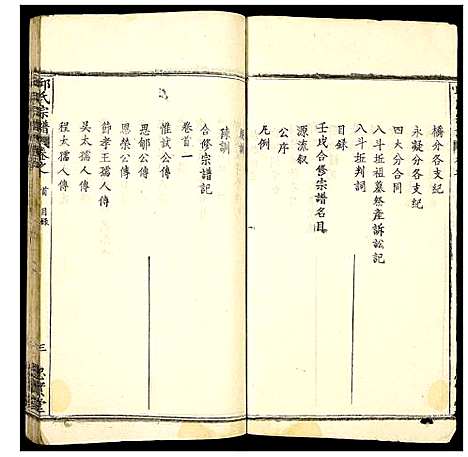 橋分各支紀
永凝分各支紀
四大分合同
八斗坵祖墓祭産訴訟記
八斗坵判詞
目錄
壬戌合修宗譜名目
源流叙
公序
凡例
陳訓
卷首一
合修宗譜記
惟試公傳
思郇公傳
恩榮公傳
節孝王孺人傳
吴太孺人傳
程太孺人傳
邱氏宗譜
卷之
首
目錄
三